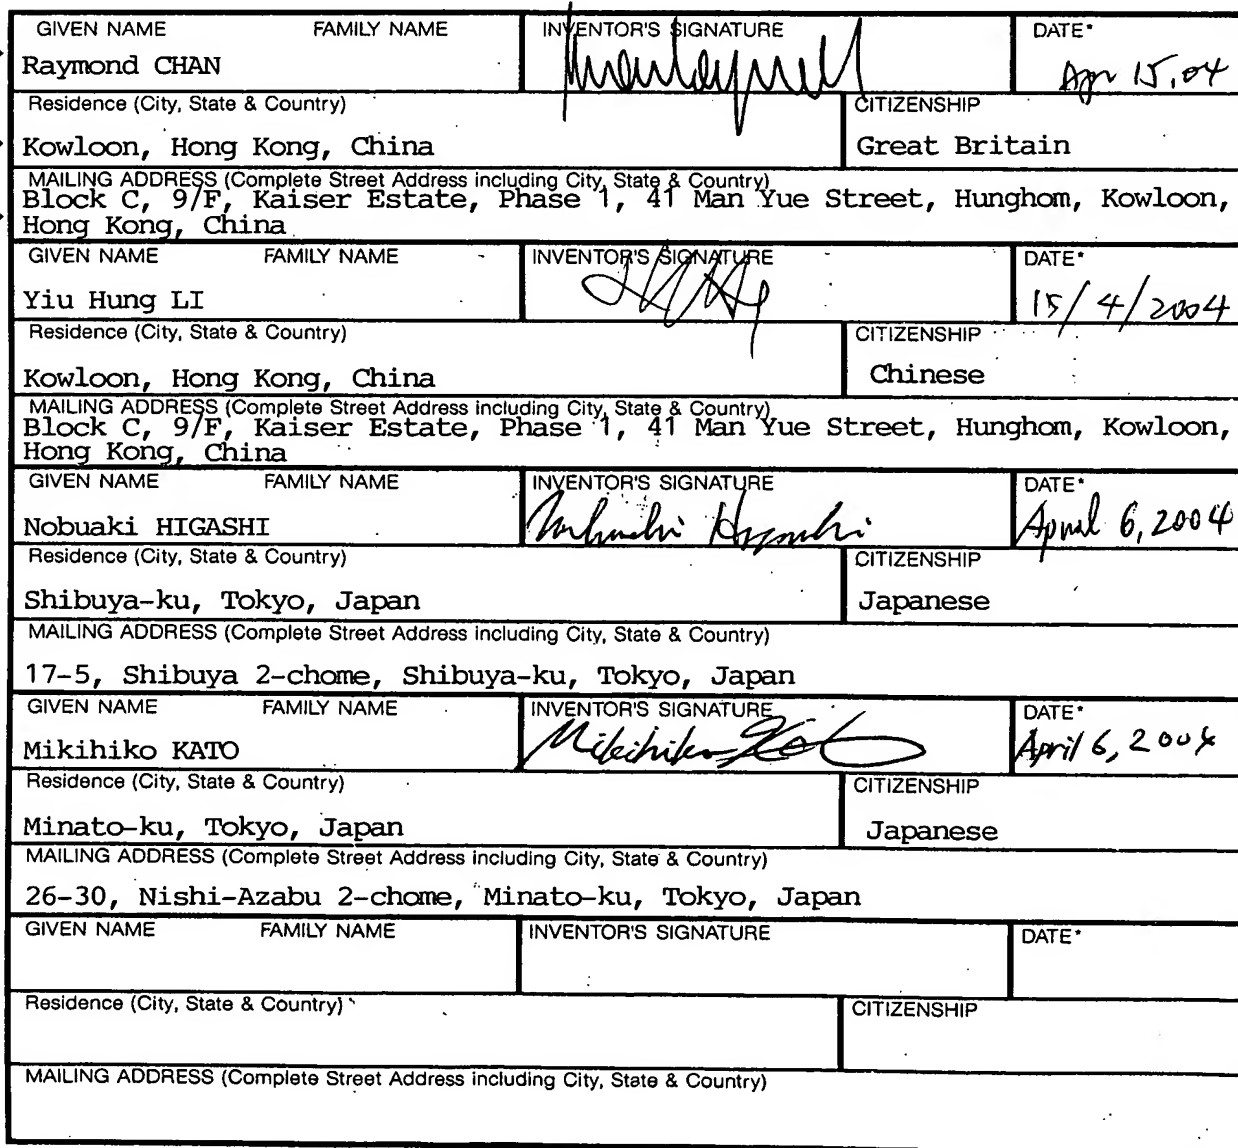 GIVEN NAME FAMILY NAME INVENTOR'S SIGNATURE DATE*
Raymond CHAN Apr 15, 04
Residence (City, State & Country) CITIZENSHIP
Kowloon, Hong Kong, China Great Britain
MAILING ADDRESS (Complete Street Address including City, State & Country)
Block C, 9/F, Kaiser Estate, Phase 1, 41 Man Yue Street, Hunghom, Kowloon,
Hong Kong, China
GIVEN NAME FAMILY NAME INVENTOR'S SIGNATURE DATE*
Yiu Hung LI 15/4/2004
Residence (City, State & Country) CITIZENSHIP
Kowloon, Hong Kong, China Chinese
MAILING ADDRESS (Complete Street Address including City, State & Country)
Block C, 9/F, Kaiser Estate, Phase 1, 41 Man Yue Street, Hunghom, Kowloon,
Hong Kong, China
GIVEN NAME FAMILY NAME INVENTOR'S SIGNATURE DATE*
Nobuaki HIGASHI April 6, 2004
Residence (City, State & Country) CITIZENSHIP
Shibuya-ku, Tokyo, Japan Japanese
MAILING ADDRESS (Complete Street Address including City, State & Country)
17-5, Shibuya 2-chome, Shibuya-ku, Tokyo, Japan
GIVEN NAME FAMILY NAME INVENTOR'S SIGNATURE DATE*
Mikihiko KATO Mikihiko Kato April 6, 2004
Residence (City, State & Country) CITIZENSHIP
Minato-ku, Tokyo, Japan Japanese
MAILING ADDRESS (Complete Street Address including City, State & Country)
26-30, Nishi-Azabu 2-chome, Minato-ku, Tokyo, Japan
GIVEN NAME FAMILY NAME INVENTOR'S SIGNATURE DATE*
Residence (City, State & Country) CITIZENSHIP
MAILING ADDRESS (Complete Street Address including City, State & Country)